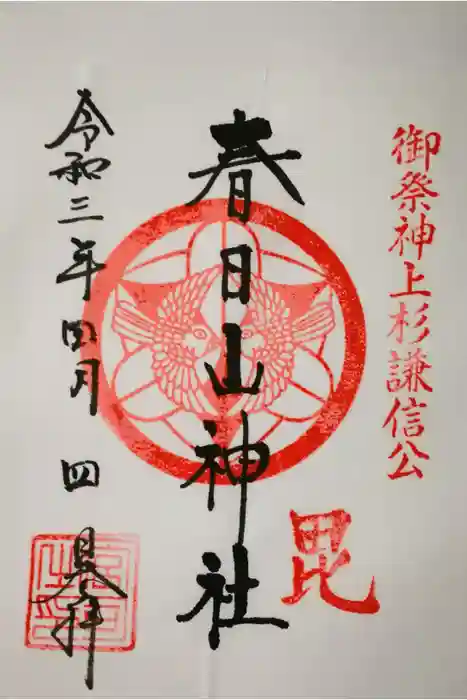 御祭神上杉謙信公
毘
春日山神社
令和三年四月四日参拝